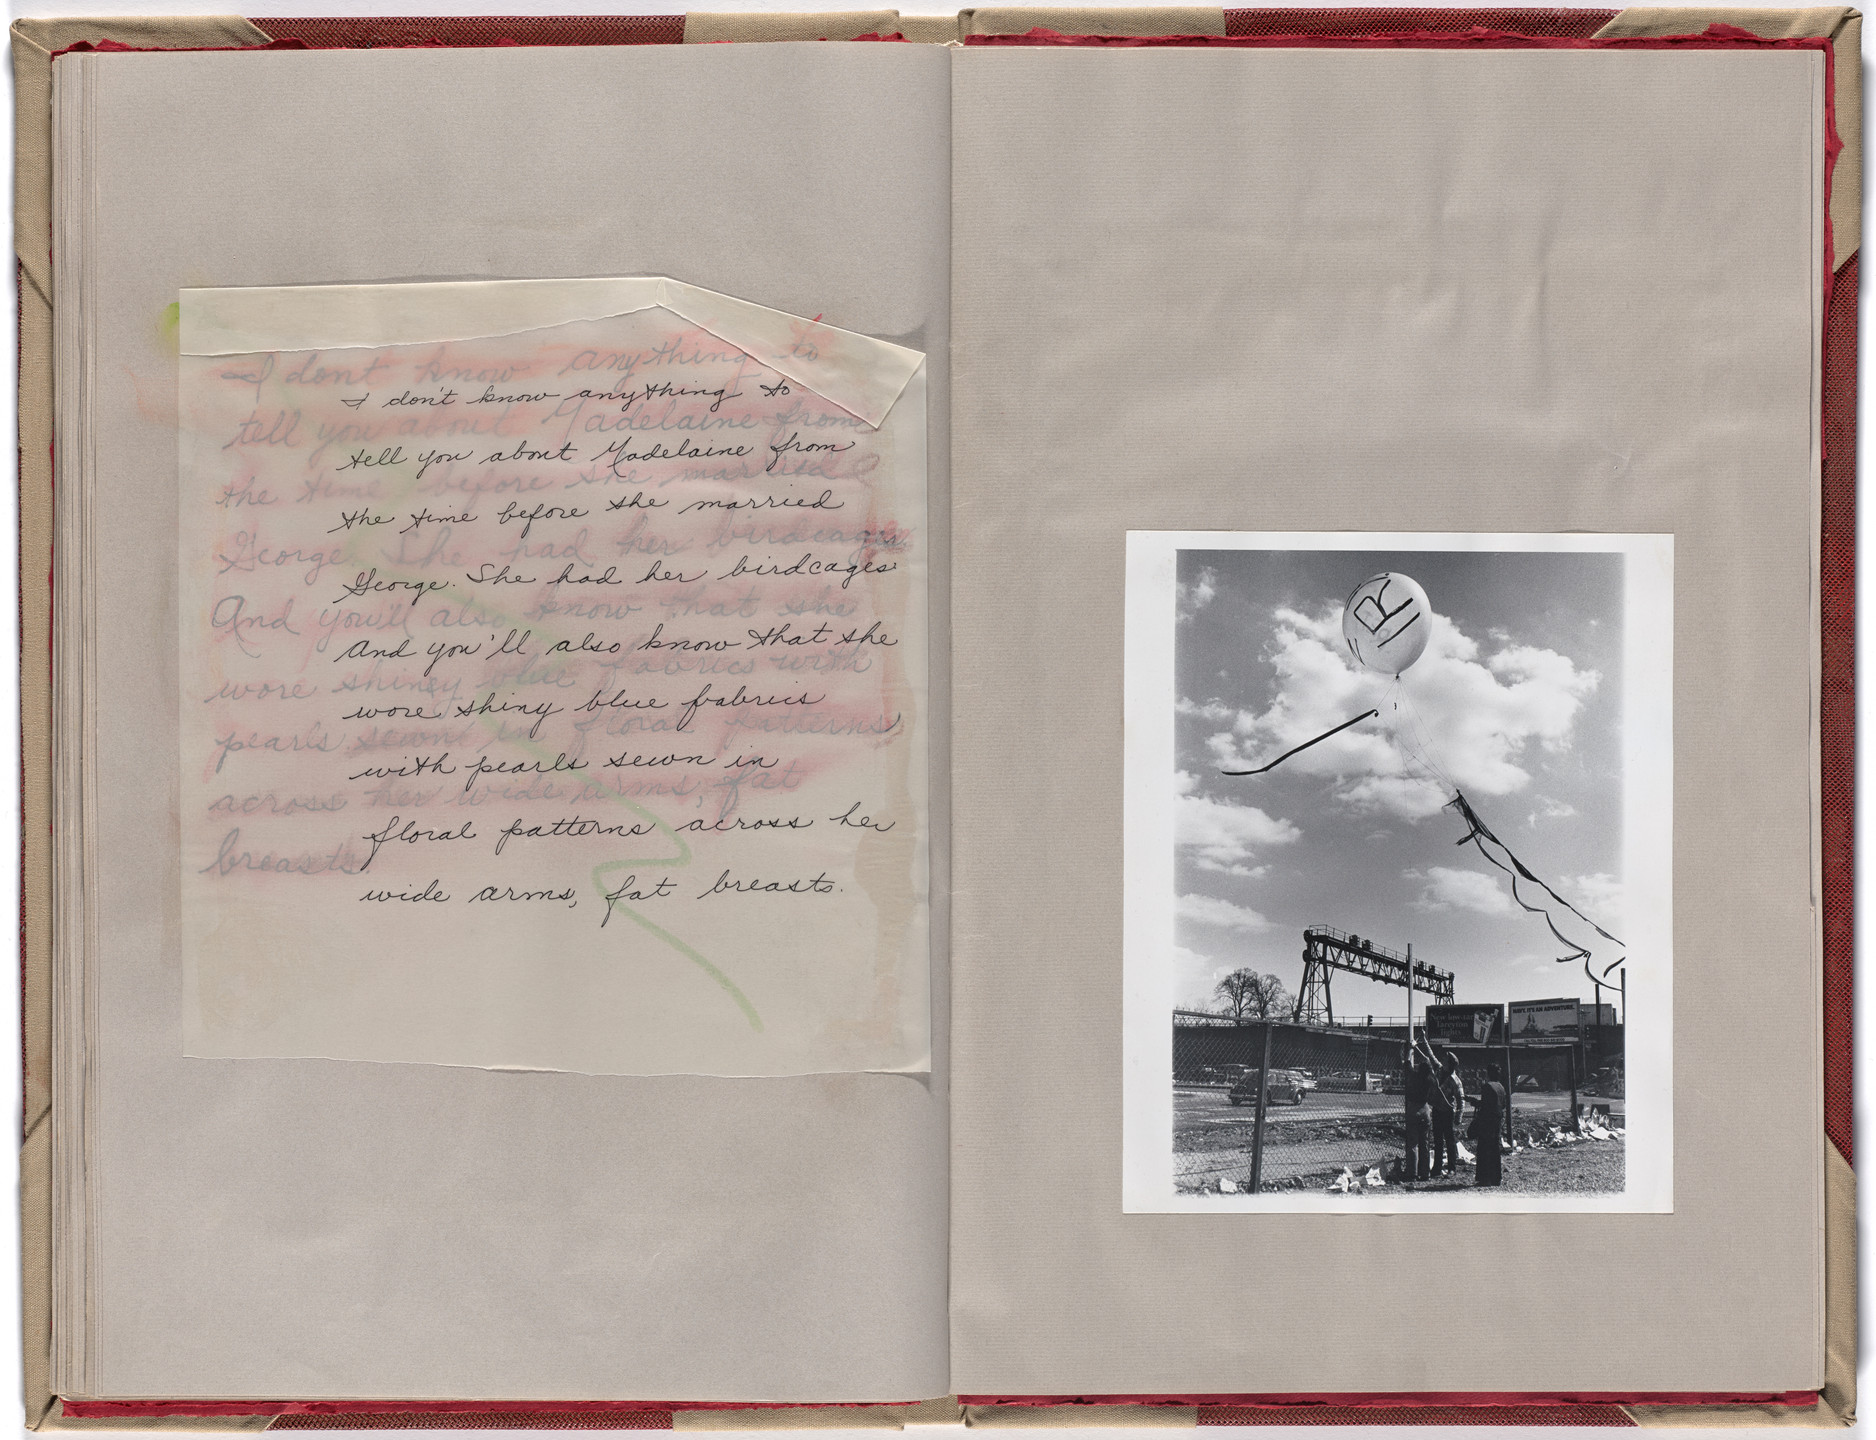 I don't know anything to
tell you about Madelaine from
the time before she married
George. She had her birdcages
And you'll also know that she
wore shiny blue fabrics
with pearls sewn in
floral patterns across her
wide arms, fat breasts.
I dont know anything to
tell you about Madelaine from
the time before she married
George. She had her birdcages.
And you'll also know that she
wore shiney blue fabrics with
pearls sewn in floral patterns
across her wide arms, fat
breasts.
R
New low-tar
Tareyton
lights
NAVY. IT'S AN ADVENTURE.